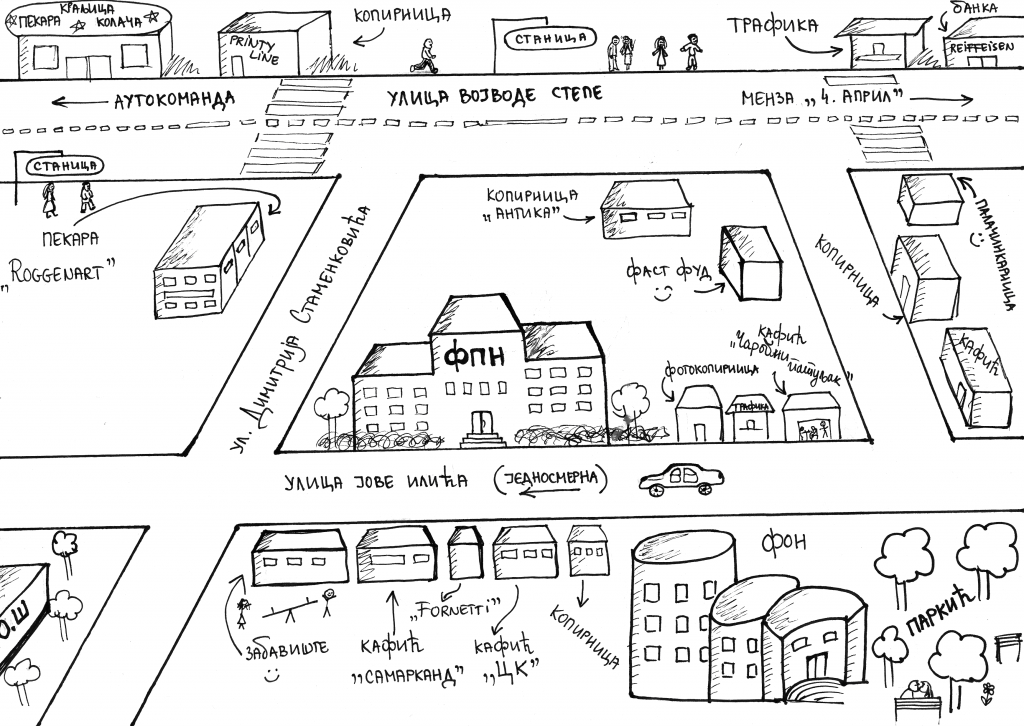 КРАЉИЦА
ПЕКАРА КОЛАЧА
PRINTY
LINE
КОПИРНИЦА
СТАНИЦА
ТРАФИКА
БАНКА
REIFFEISEN
АУТОКОМАНДА
УЛИЦА ВОЈВОДЕ СТЕПЕ
МЕНЗА „4. АПРИЛ”
СТАНИЦА
ПЕКАРА
„ROGGENART”
УЛ. ДИМИТРИЈА СТАМЕНКОВИЋА
КОПИРНИЦА
„АНТИКА”
ФАСТ ФУД
ПАЛАЧИНКАРНИЦА
КОПИРНИЦА
КАФИЋ
ФПН
ФОТОКОПИРНИЦА
КАФИЋ
„ЧАРОБЊАШТУЉАК”
ТРАФИКА
УЛИЦА ЈОВЕ ИЛИЋА (ЈЕДНОСМЕРНА)
О.Ш
ЗАБАВИШТЕ
КАФИЋ
„САМАРКАНД”
„FORNETTI”
КАФИЋ
„ЦК”
КОПИРНИЦА
ФОН
ПАРКИЋ